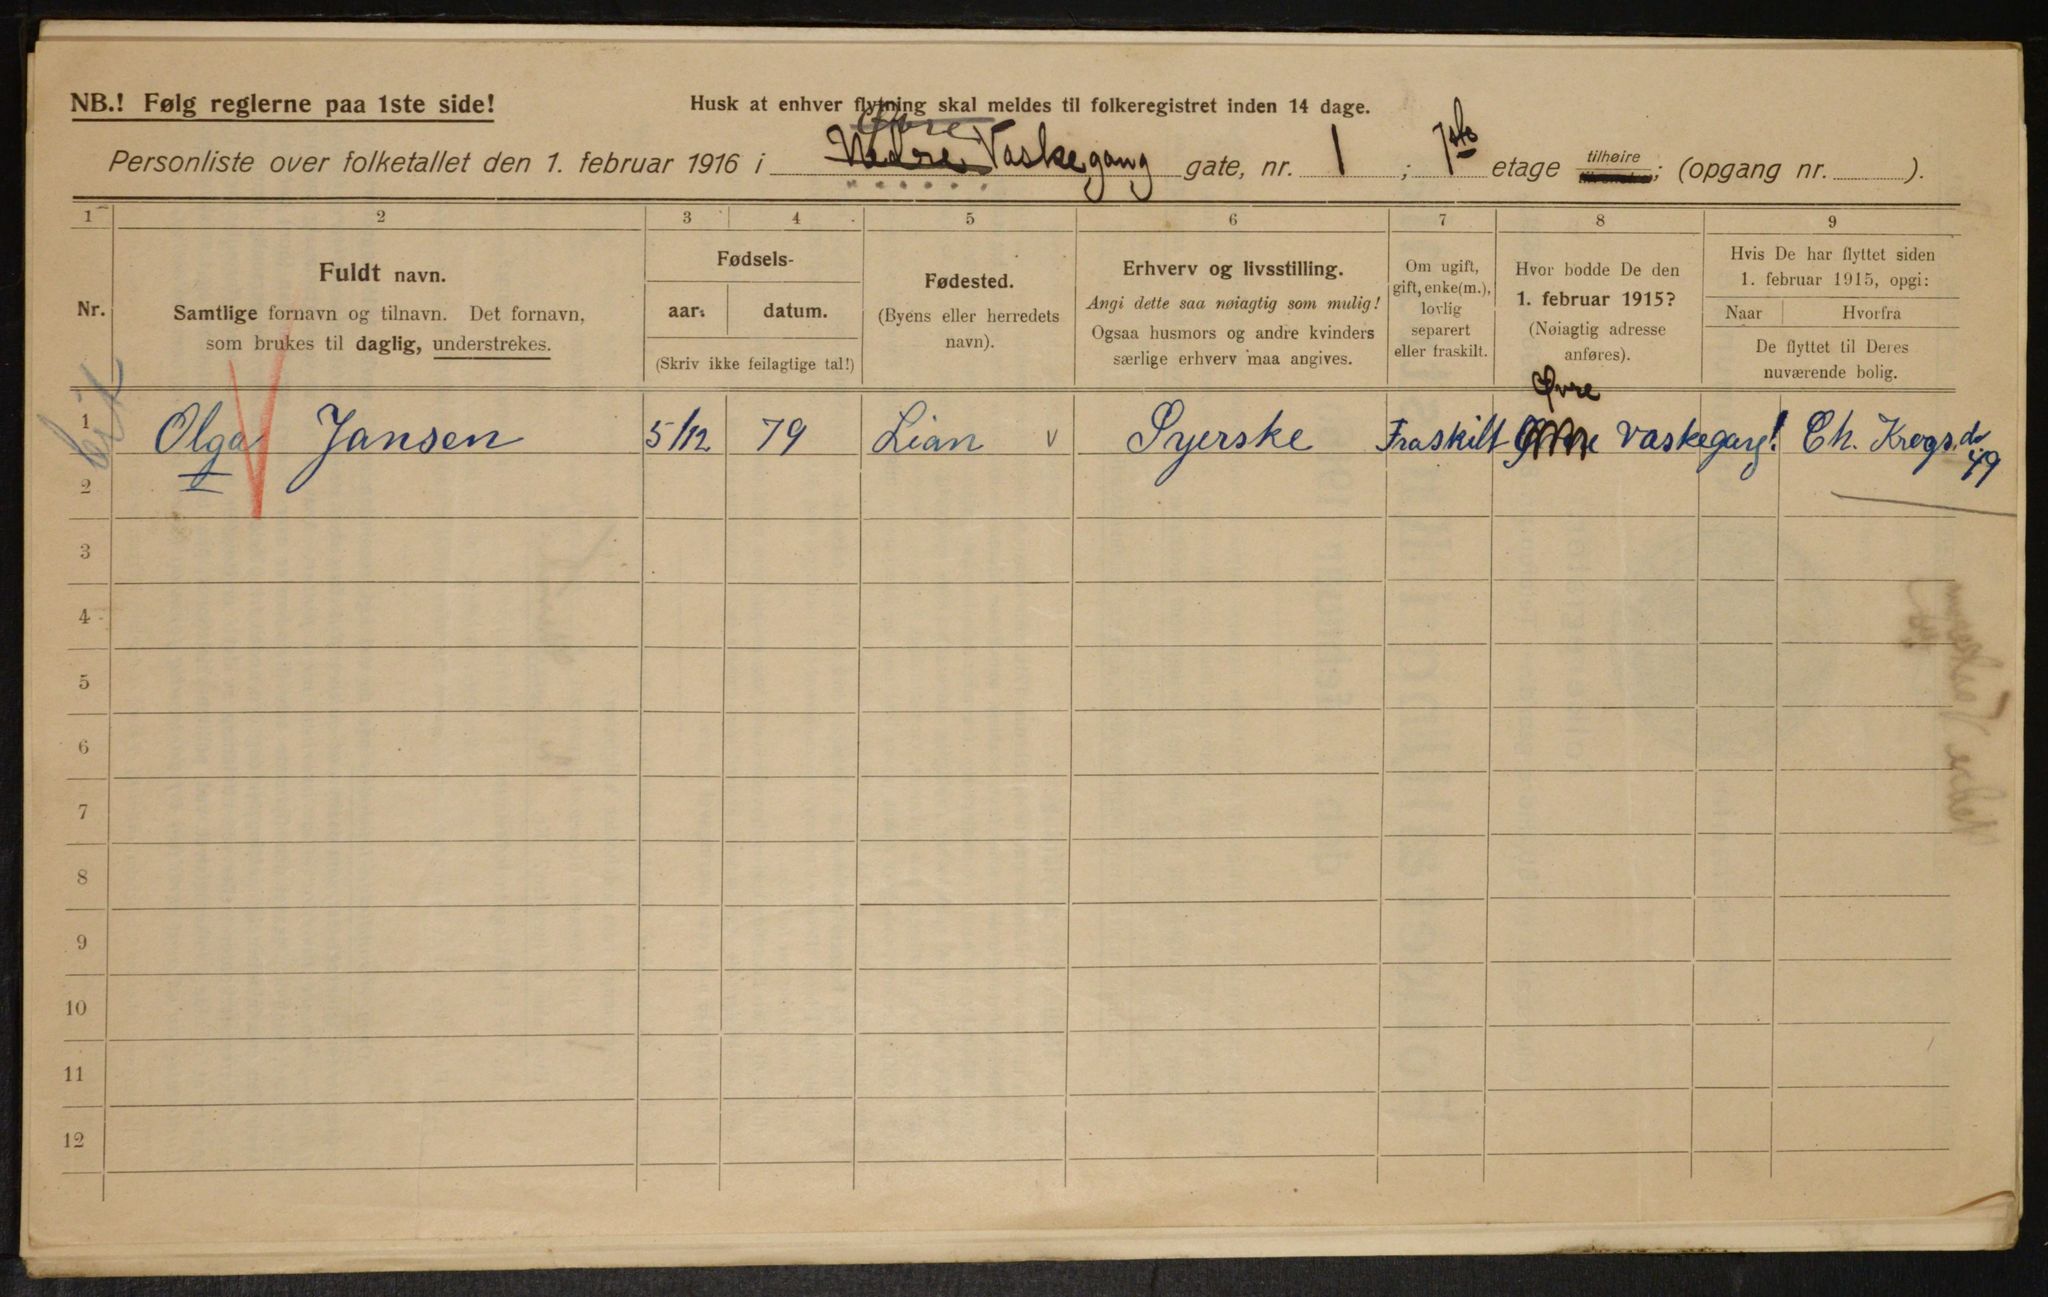 NB.! Følg reglerne paa 1ste side!
Husk at enhver flytning skal meldes til folkeregistret inden 14 dage.
Øvre
Personliste over folketallet den 1. februar 1916 i Nedre Vaskegang gate, nr. 1 ; 1ste etage tilhøire; (opgang nr. ).
1 2 3 4 5 6 7 8 9
Nr.
Fuldt navn.
Samtlige fornavn og tilnavn. Det fornavn,
som brukes til daglig, understrekes.
Fødsels-
aar: datum.
(Skriv ikke feilagtige tal!)
Fødested.
(Byens eller herredets
navn).
Erhverv og livsstilling.
Angi dette saa nøiagtig som mulig!
Ogsaa husmors og andre kvinders
særlige erhverv maa angives.
Om ugift,
gift, enke(m.),
lovlig
separert
eller fraskilt.
Hvor bodde De den
1. februar 1915?
(Nøiagtig adresse
anføres).
Hvis De har flyttet siden
1. februar 1915, opgi:
Naar Hvorfra
De flyttet til Deres
nuværende bolig.
Øvre
1 Olga Jansen 5/12 79 Lian v Syerske Fraskilt Vaskegang 1 Ch. Krogs
49
2
3
4
5
6
7
8
9
10
11
12